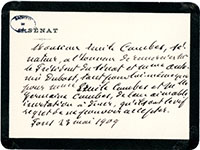 SÉNAT
Monsieur Emile Combes, sé-
nateur, a l'honneur de remercier
le Président du Sénat et Mme Anto-
nin Dubost, tant pour lui-même que
pour Mme Emile Combes et Mme
Germaine Combes, de leur aimable
invitation à dîner, qu'ils ont le vif
regret de ne pouvoir accepter.
Pons 23 mai 1909